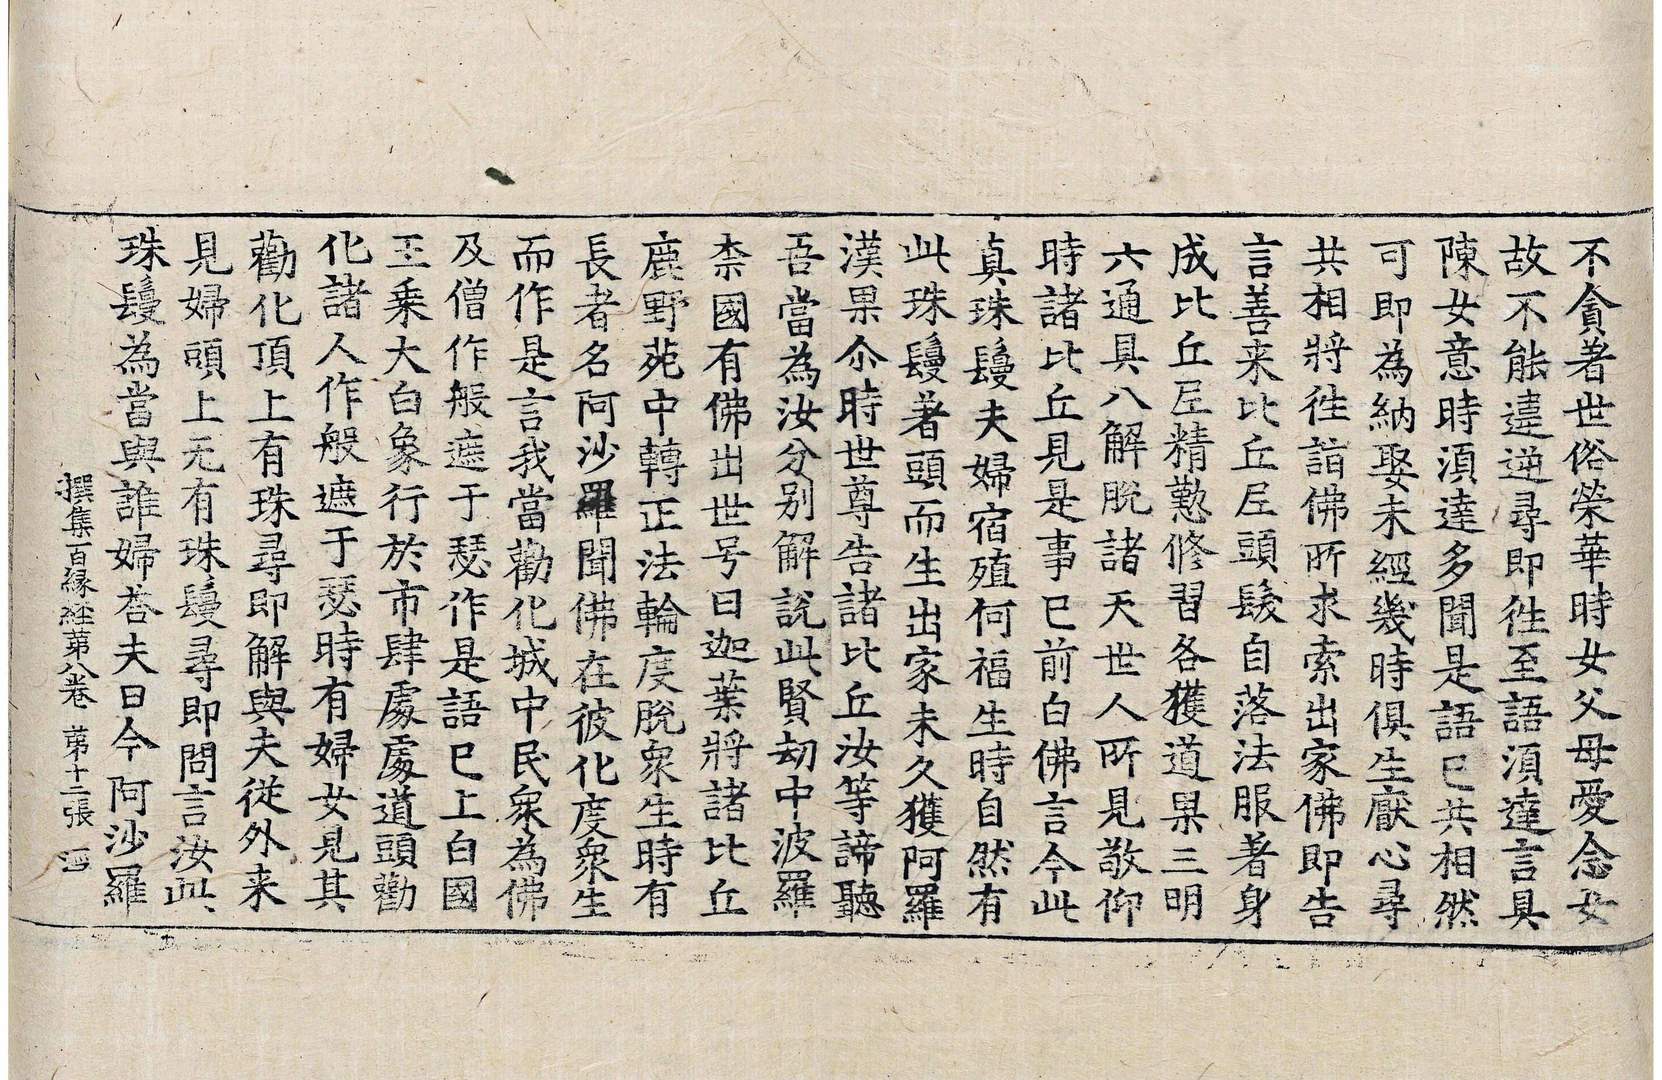 不貪著世俗榮華時女父母愛念女
故不能違逆尋即往至語湏達言具
陳女意時湏達多聞是語已共相然
可即為納娶未經幾時俱生厭心尋
共相將往詣佛所求索出家佛即告
言善来比丘尼頭髮自落法服著身
成比丘尼精懃修習各獲道果三明
六通具八解脫諸天世人所見敬仰
時諸比丘見是事已前白佛言今此
真珠鬘夫婦宿殖何福生時自然有
此珠鬘著頭而生出家未久獲阿羅
漢果尒時世尊告諸比丘汝等諦聽
吾當為汝分别解說此賢劫中波羅
柰國有佛出世号曰迦葉將諸比丘
鹿野苑中轉正法輪度脫衆生時有
長者名阿沙羅聞佛在彼化度衆生
而作是言我當勸化城中民衆為佛
及僧作般遮于瑟作是語已上白國
王乗大白象行於市肆處處道頭勸
化諸人作般遮于瑟時有婦女見其
勸化頂上有珠尋即解與夫従外来
見婦頭上无有珠鬘尋即問言汝此
珠鬘為當與誰婦荅夫曰今阿沙羅
撰集百縁経苐八卷 苐十二張